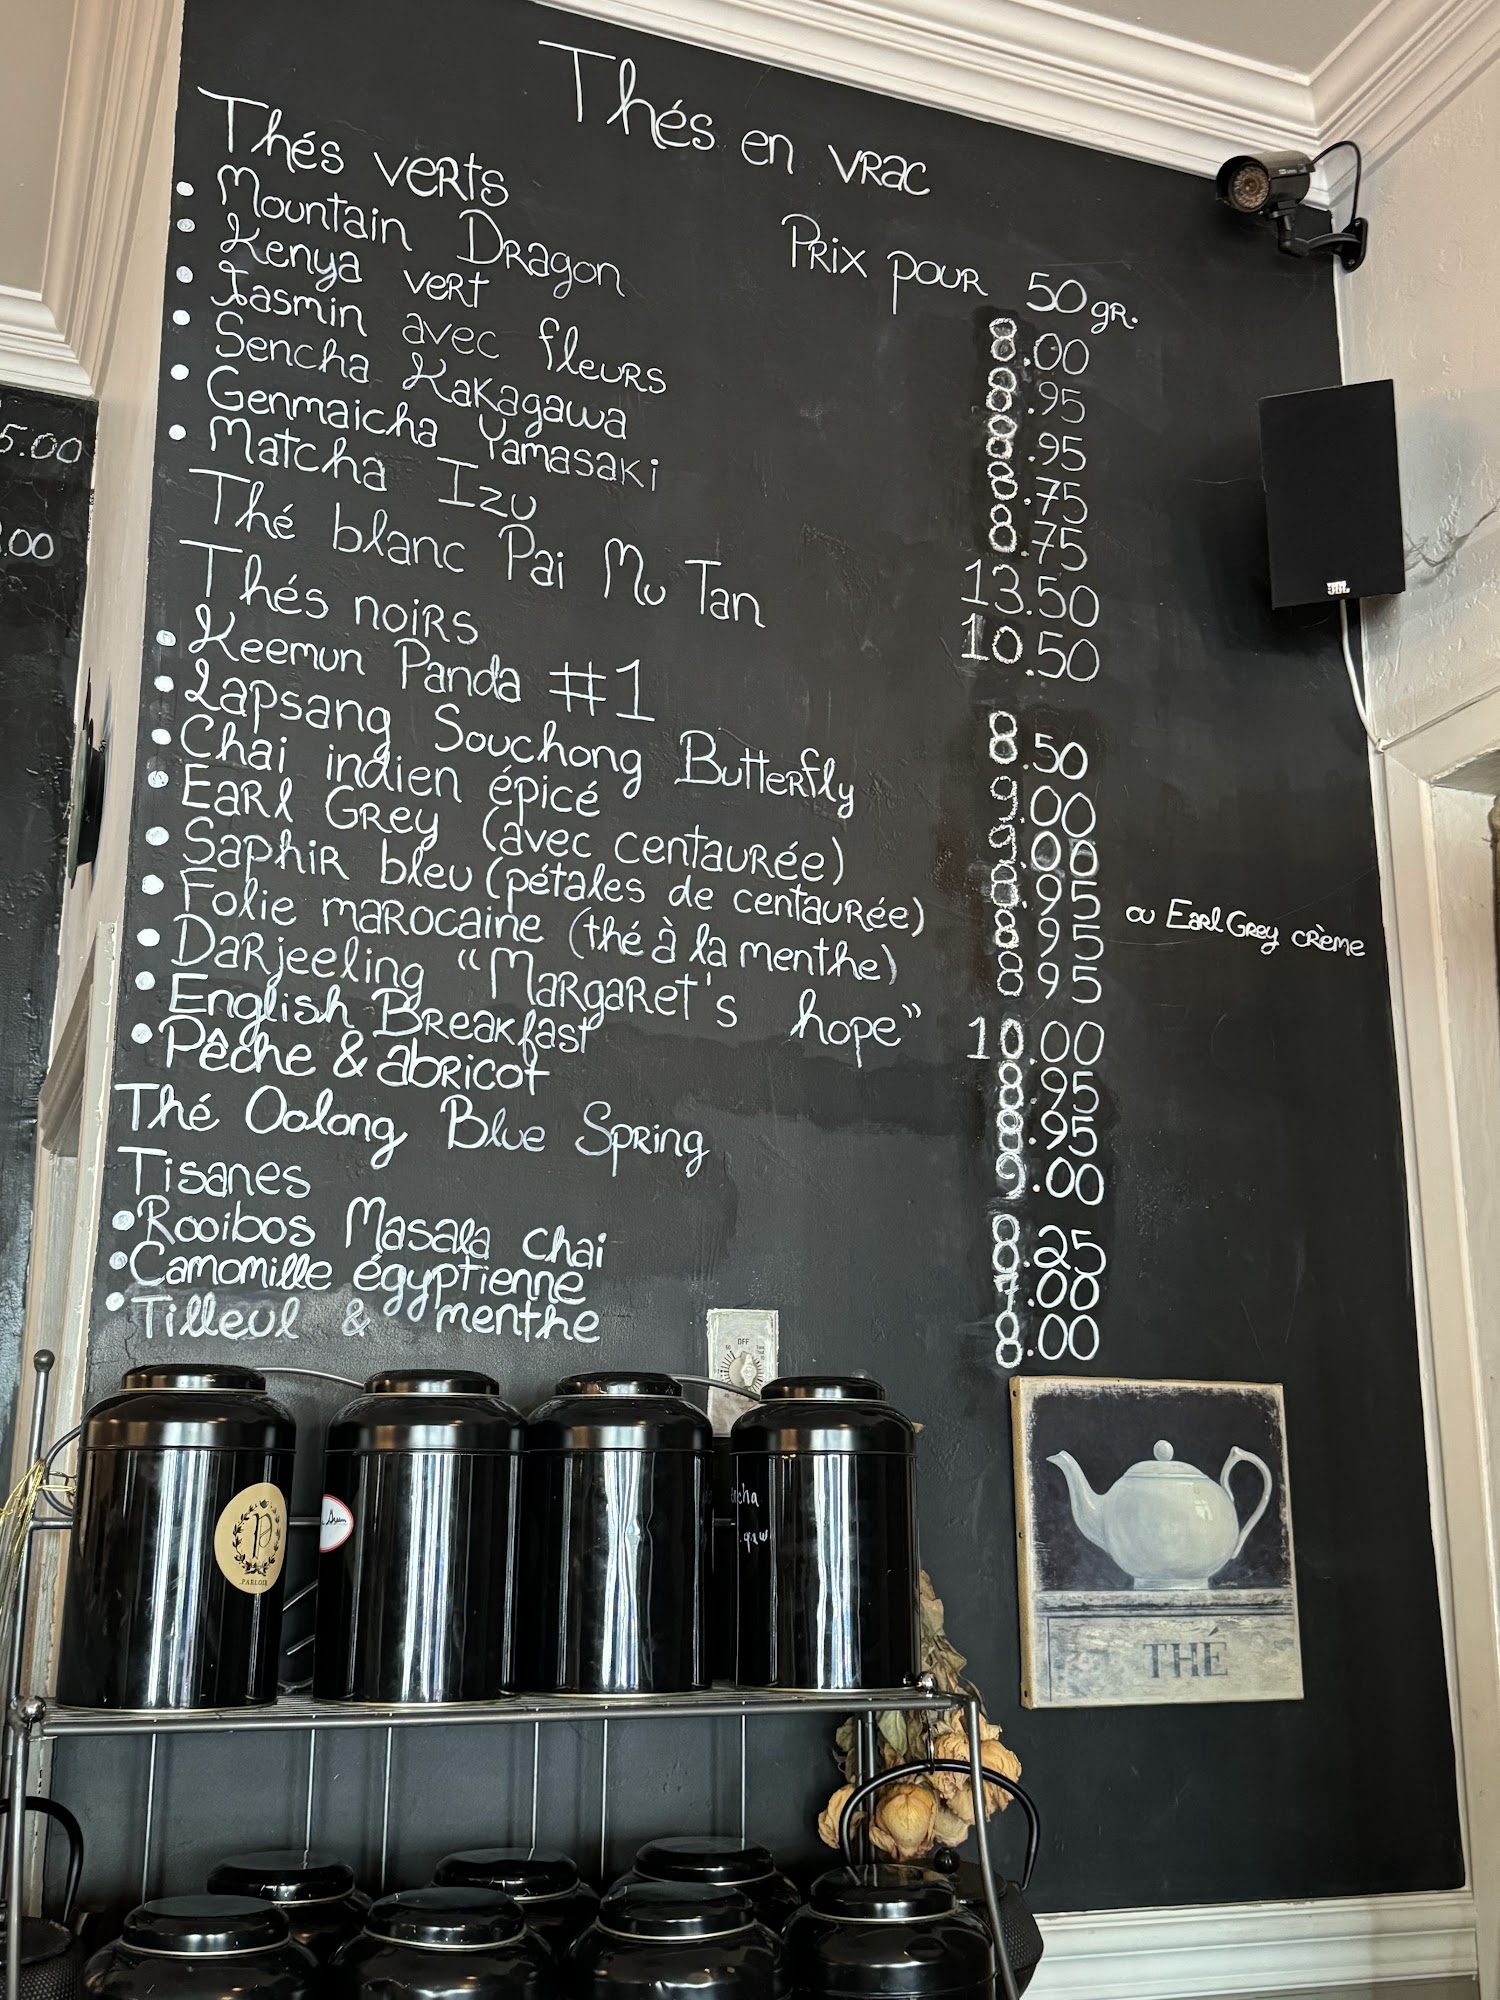 Thés en vrac
Thés verts
Prix pour 50 gr.
• Mountain Dragon 8.00
• Kenya vert 8.95
• Jasmin avec fleurs 8.95
• Sencha Kakagawa 8.75
• Genmaicha Yamasaki 8.75
• Matcha Izu 13.50
Thé blanc Pai Mu Tan 10.50
Thés noirs
• Keemun Panda #1 8.50
• Lapsang Souchong Butterfly 9.00
• Chai indien épicé 9.00
• Earl Grey (avec centaurée) 8.95 ou Earl Grey crème
• Saphir bleu (pétales de centaurée) 8.95
• Folie marocaine (thé à la menthe) 8.95
• Darjeeling "Margaret's hope" 10.00
• English Breakfast 8.95
• Pêche & abricot 8.95
Thé Oolong Blue Spring 9.00
Tisanes
• Rooibos Masala chai 8.25
• Camomille égyptienne 7.00
• Tilleul & menthe 8.00
5.00
.00
JBL
OFF
P
PARLOIR
THÉ